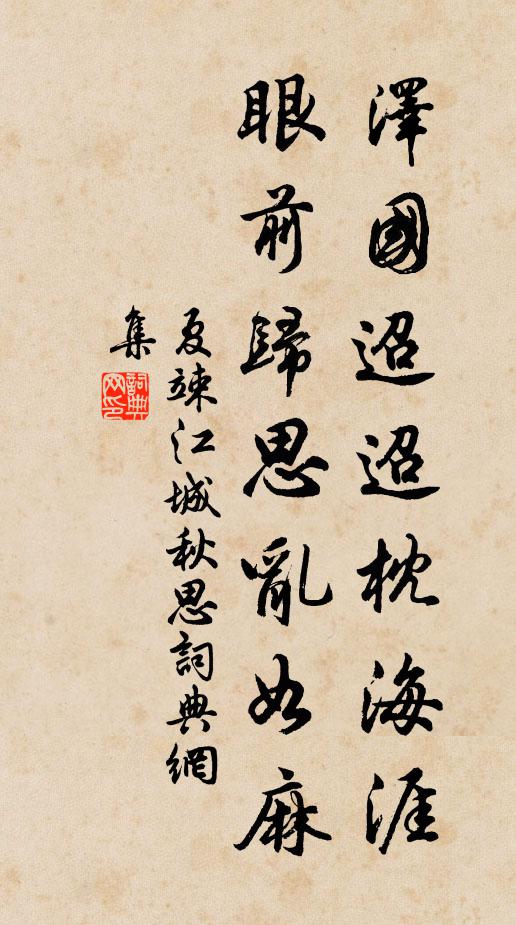 澤國迢迢枕海涯
眼前歸思亂如麻
夏竦江城秋思詞典網
集
詞典網印